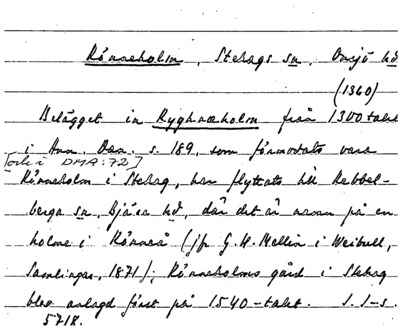 Rönneholm, Stehags sn, Onsjö hd
(1360)
Belägget in Ryghnæholm från 1300talet
i Ann. Dan. s. 189, som förmodats vara
[och i DMA:72]
Rönneholm i Stehag, har flyttats till Rebbel-
berga sn, Bjäre hd, där det är namn på en
holme i Rönneå (jfr G. H. Mellin i Weibull,
Samlingar, 1871); Rönneholms gård i Stehag
blev anlagd först på 1540-talet. S. 1-s.
5718.